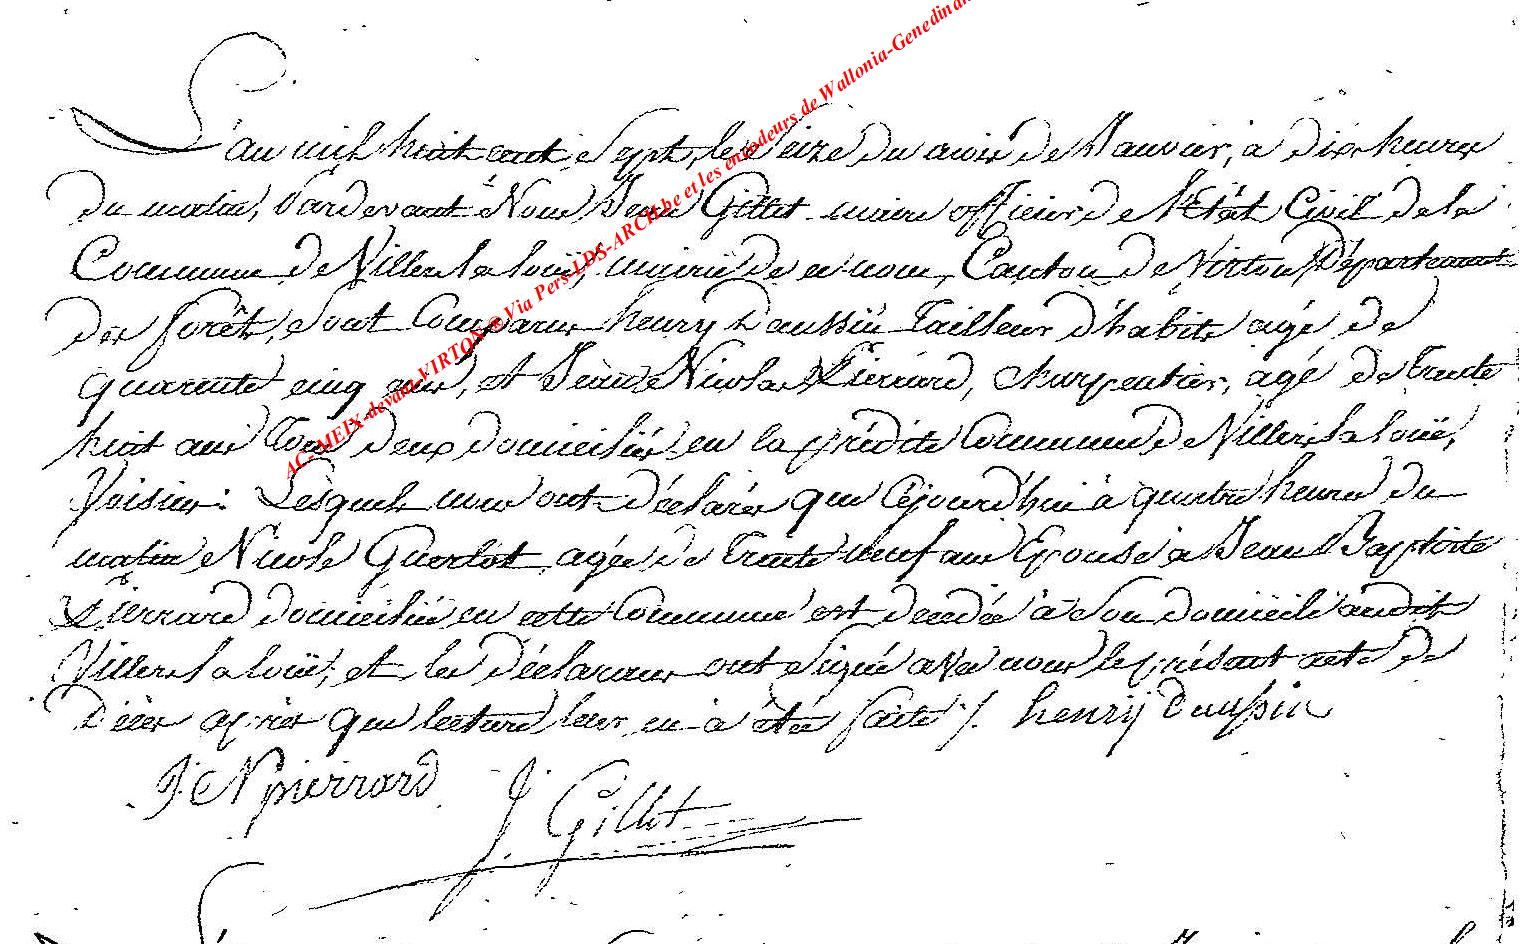 L'an mil huit cent Sept, le Seize du mois de Janvier, à dix heures
du matin, Pardevant Nous Jean Gillet maire officier de l'Etat Civil de la
Commune de Villers la loüe, mairie de ce nom, Canton de Virton, Département
des forêts, sont Comparus henry Daussin Tailleur d'habits agé de
quarante cinq ans, et Jean Nicolas Pierrard, Charpentier, agé de trente
huit ans Tous deux domiciliés en la prédite Commune de Villers la loüe,
Voisins: Lesquels nous ont déclarés que Cejourd'hui à quatre heures du
matin Nicole Guerlot agée de Trente neuf ans Epouse à Jean Baptiste
Pierrard domicilié en cette Commune est decedée à Son domicile audit
Villers la loüe; et les déclarans ont signé avec nous le présent acte de
Décès après que lecture leur en a été faite /. henry daussin
J N pierrard J Gillet
AC-MEIX-devant-VIRTON ® Via Pers-LDS-ARCH.be et les encodeurs de Wallonia-Genedinan